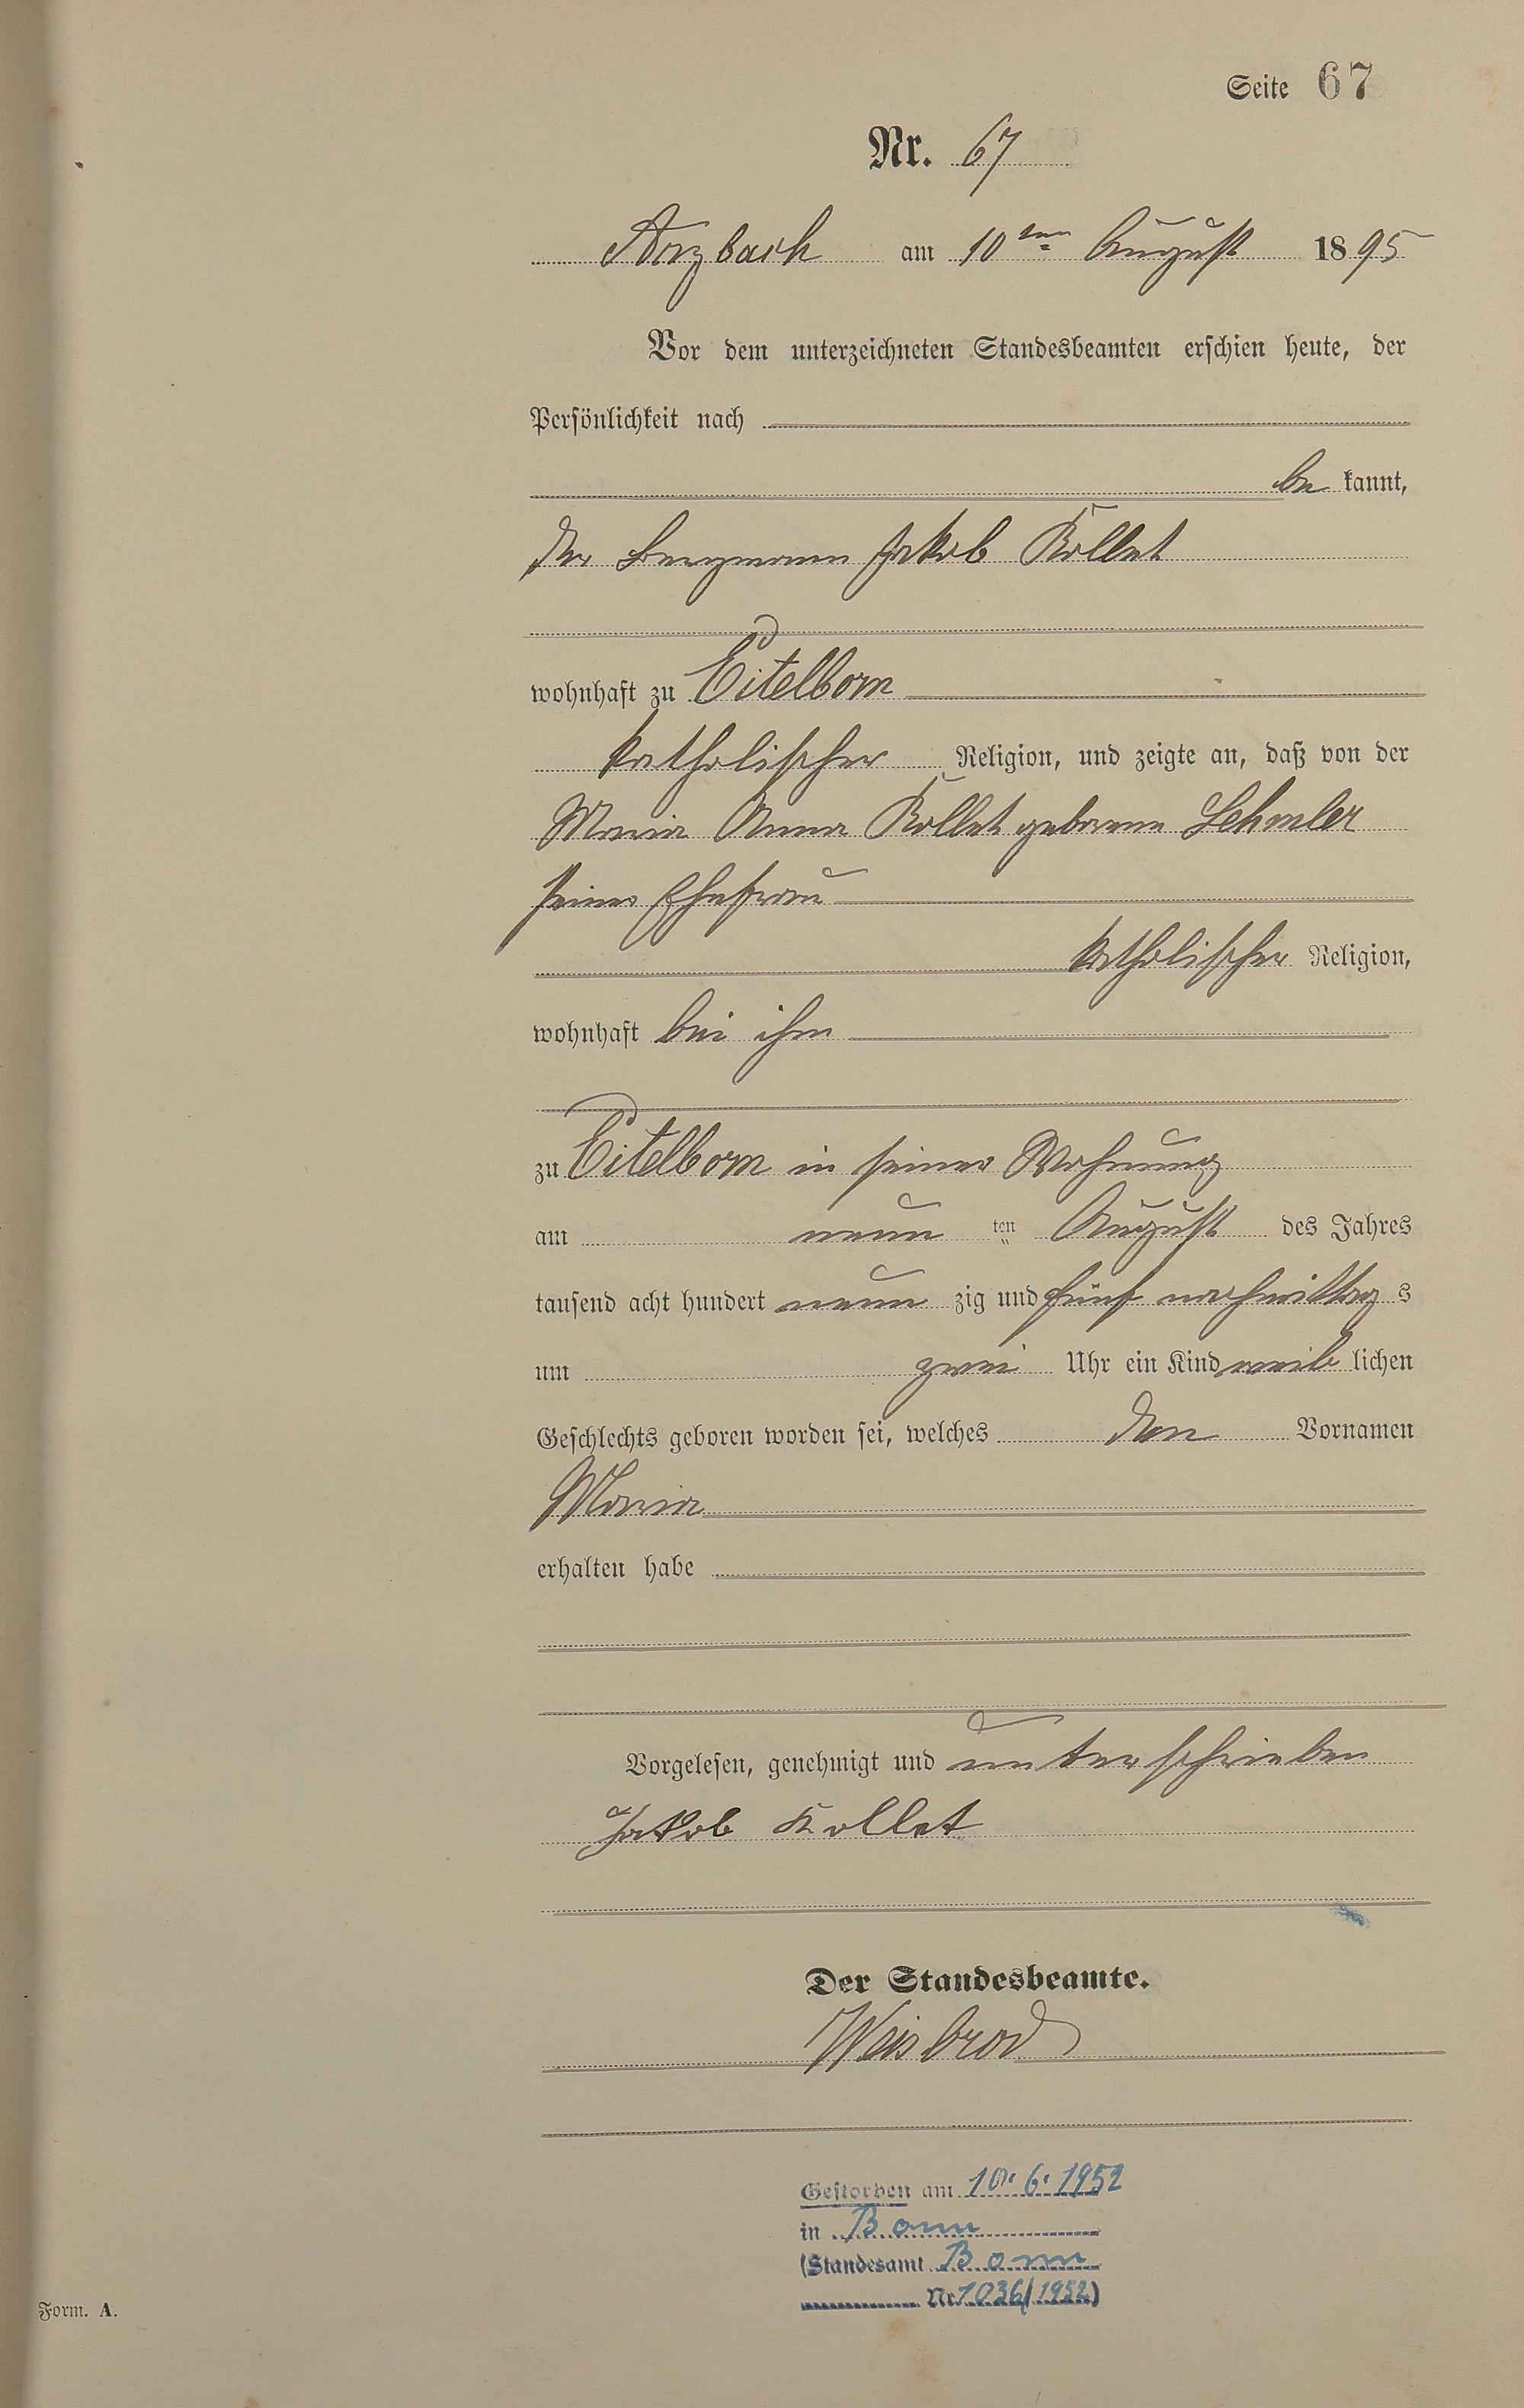 Seite 67
Nr. 67
Arzbach am 10ten August 1895
Vor dem unterzeichneten Standesbeamten erschien heute, der
Persönlichkeit nach
be kannt,
der Bergmann Jakob Kollet
wohnhaft zu Eitelborn
katholischer Religion, und zeigte an, daß von der
Maria Anna Kollet geborene Lehmler
seiner Ehefrau
katholischer Religion,
wohnhaft bei ihm
zu Eitelborn in seiner Wohnung
am neun ten August des Jahres
tausend acht hundert neun zig und fünf nachmittag s
um zwei Uhr ein Kind weib lichen
Geschlechts geboren worden sei, welches den Vornamen
Maria
erhalten habe
Vorgelesen, genehmigt und unterschrieben
Jakob Kollet
Der Standesbeamte.
Weisbrod
Gestorben am 10.6.1952
in Bonn
(Standesamt Bonn
Nr. 1036/1952)
Form. A.